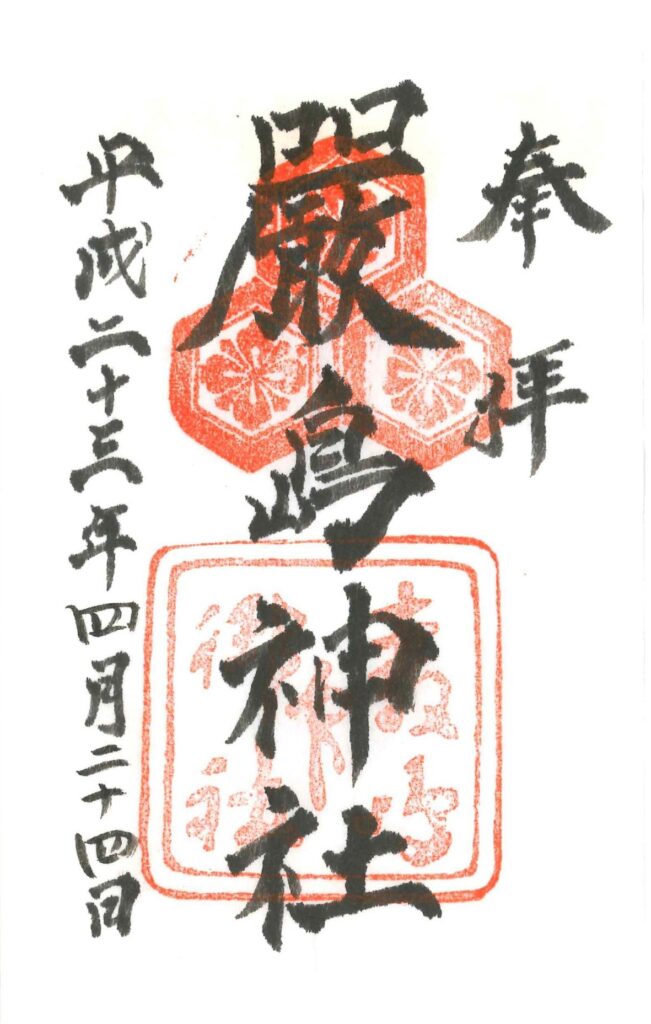 奉拝
嚴嶋神社
平成二十三年四月二十四日